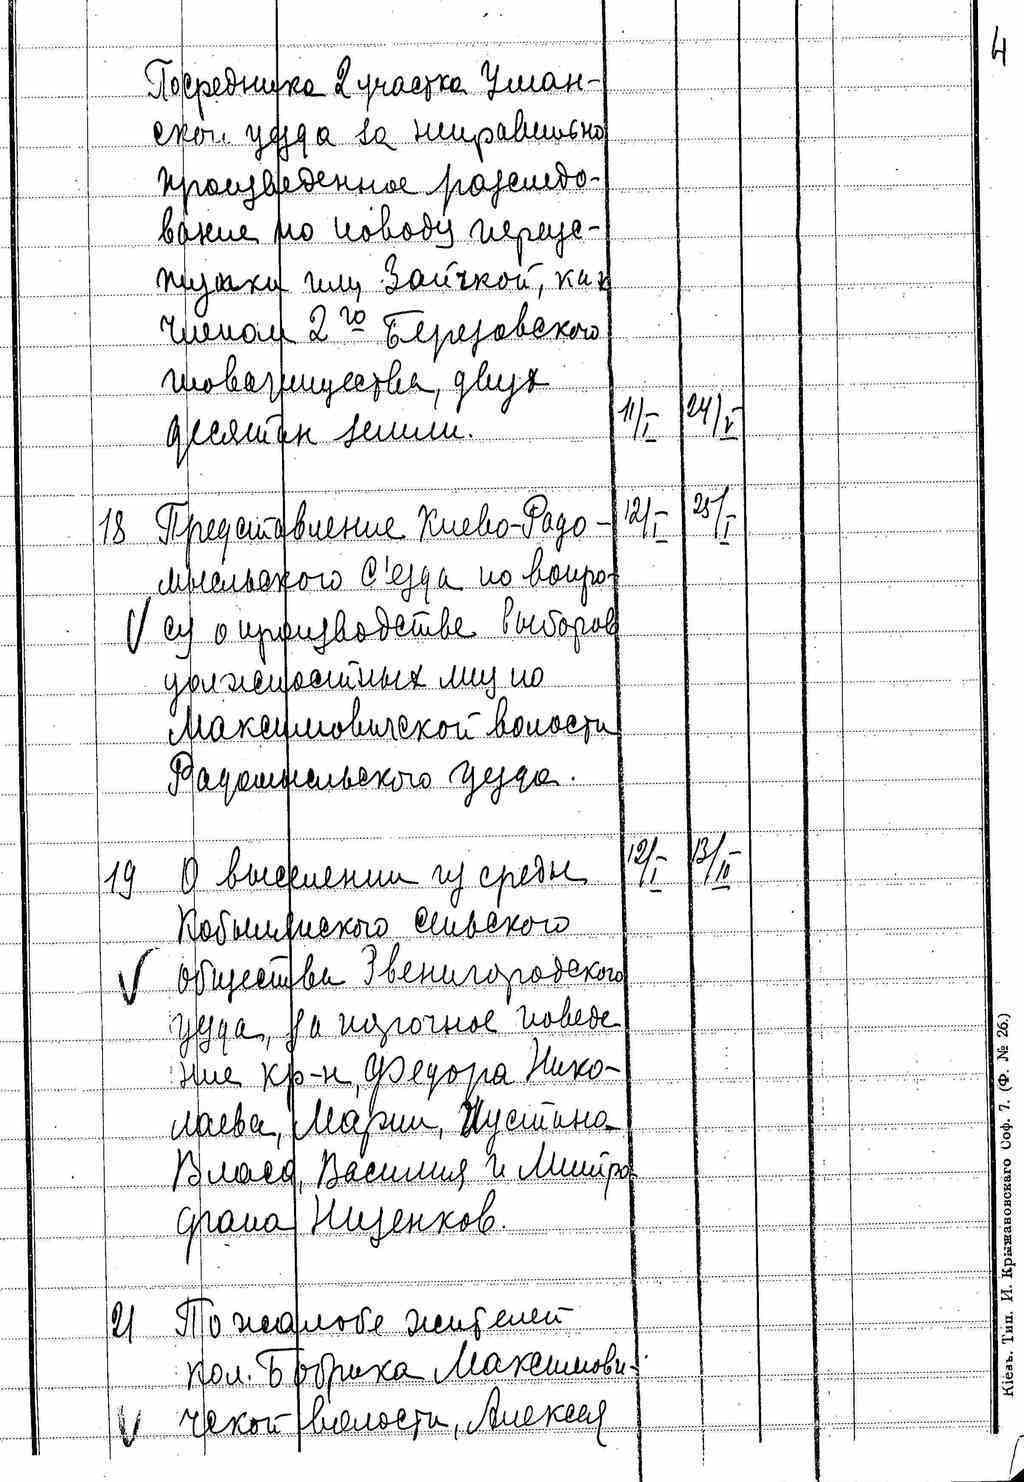 4
Посредника 2 участка Уман-
ского уезда за неправильно
произведенное расследо-
вание по поводу переус-
тупки им, Зайчкой, как
членом 2го Березовского
товарищества, двух
десятин земли. 11/I 24/V
18 Представление Киево-Радо- 12/I 25/I
мысльского С'езда по вопро-
су о производстве выборов
должностных лиц по
Максимовичской волости
Радомысльского уезда.
19 О выселении из среды 12/I 13/III
Кобылянского сельского
общества Звенигородского
уезда, за порочное поведе
ние кр-н, Федора Нико-
лаева, Марии, Иустина
Власа, Василия и Митро-
фана Ниценков.
21 По жалобе жителей
кол. Бобрика Максимови-
ческой волости, Алексея
Кіевъ. Тип. И. Крыжановскаго Соф. 7. (Ф. № 26.)